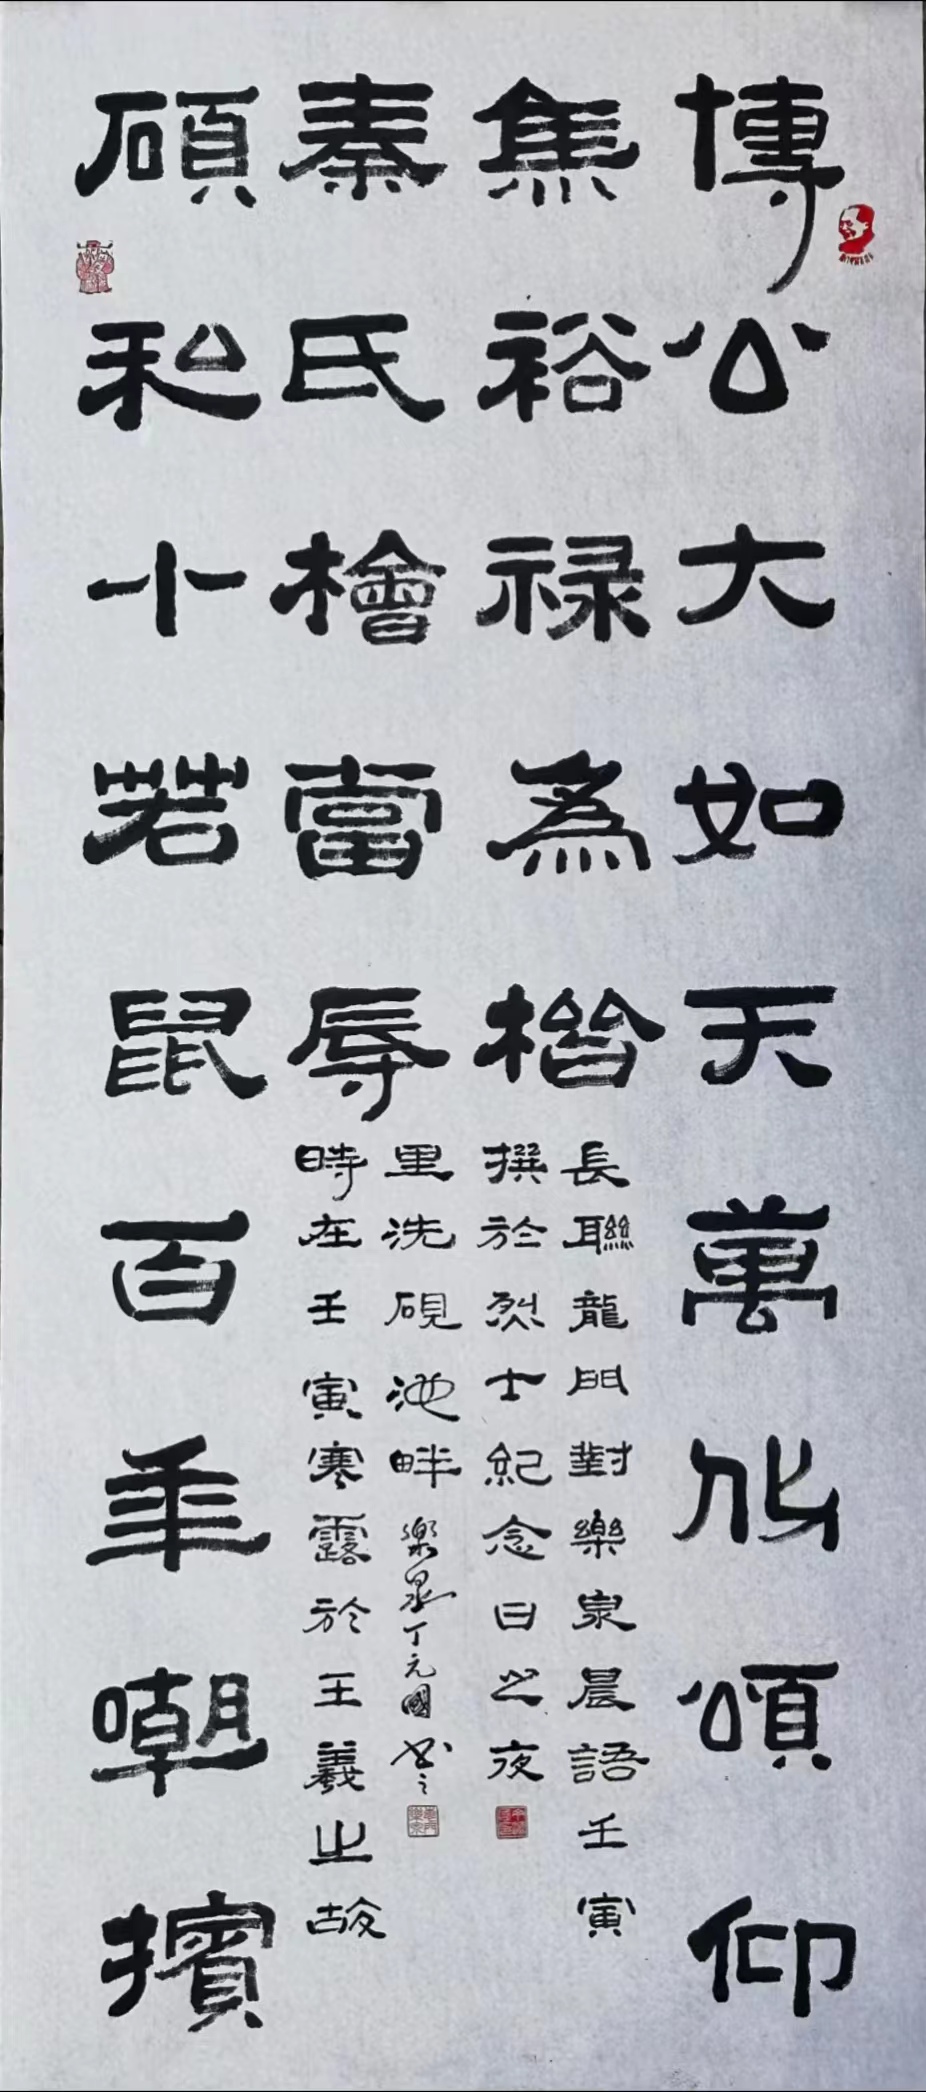 博公大如天萬代頌仰
焦裕禄為楷
長聯龍門對樂泉晨語壬寅
撰於烈士紀念日之夜
碩私小若鼠百年嘲擯
秦氏檜當辱
時在壬寅寒露於王羲之故
里洗硯池畔樂泉丁元國書之